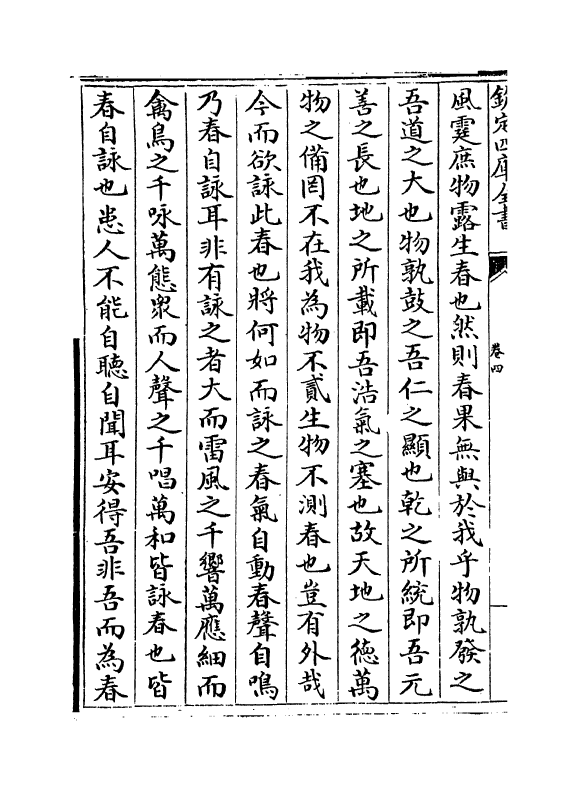 欽定四庫全書
卷四
風霆庶物露生春也然則春果無與於我乎物孰發之
吾道之大也物孰鼓之吾仁之顯也乾之所統即吾元
善之長也地之所載即吾浩氣之塞也故天地之徳萬
物之備罔不在我為物不貳生物不測春也豈有外哉
今而欲詠此春也將何如而詠之春氣自動春聲自鳴
乃春自詠耳非有詠之者大而雷風之千響萬應細而
禽鳥之千咏萬態衆而人聲之千唱萬和皆詠春也皆
春自詠也患人不能自聽自聞耳安得吾非吾而為春